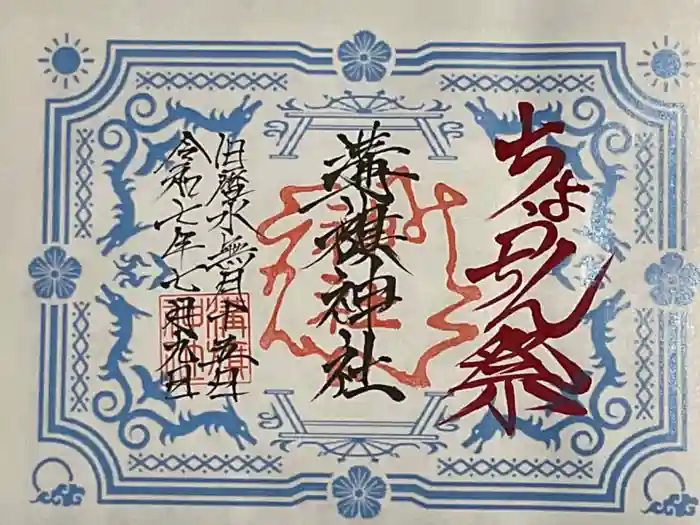 ちょうちん祭
溝旗神社
旧暦水無月十五日
令和七年七月九日